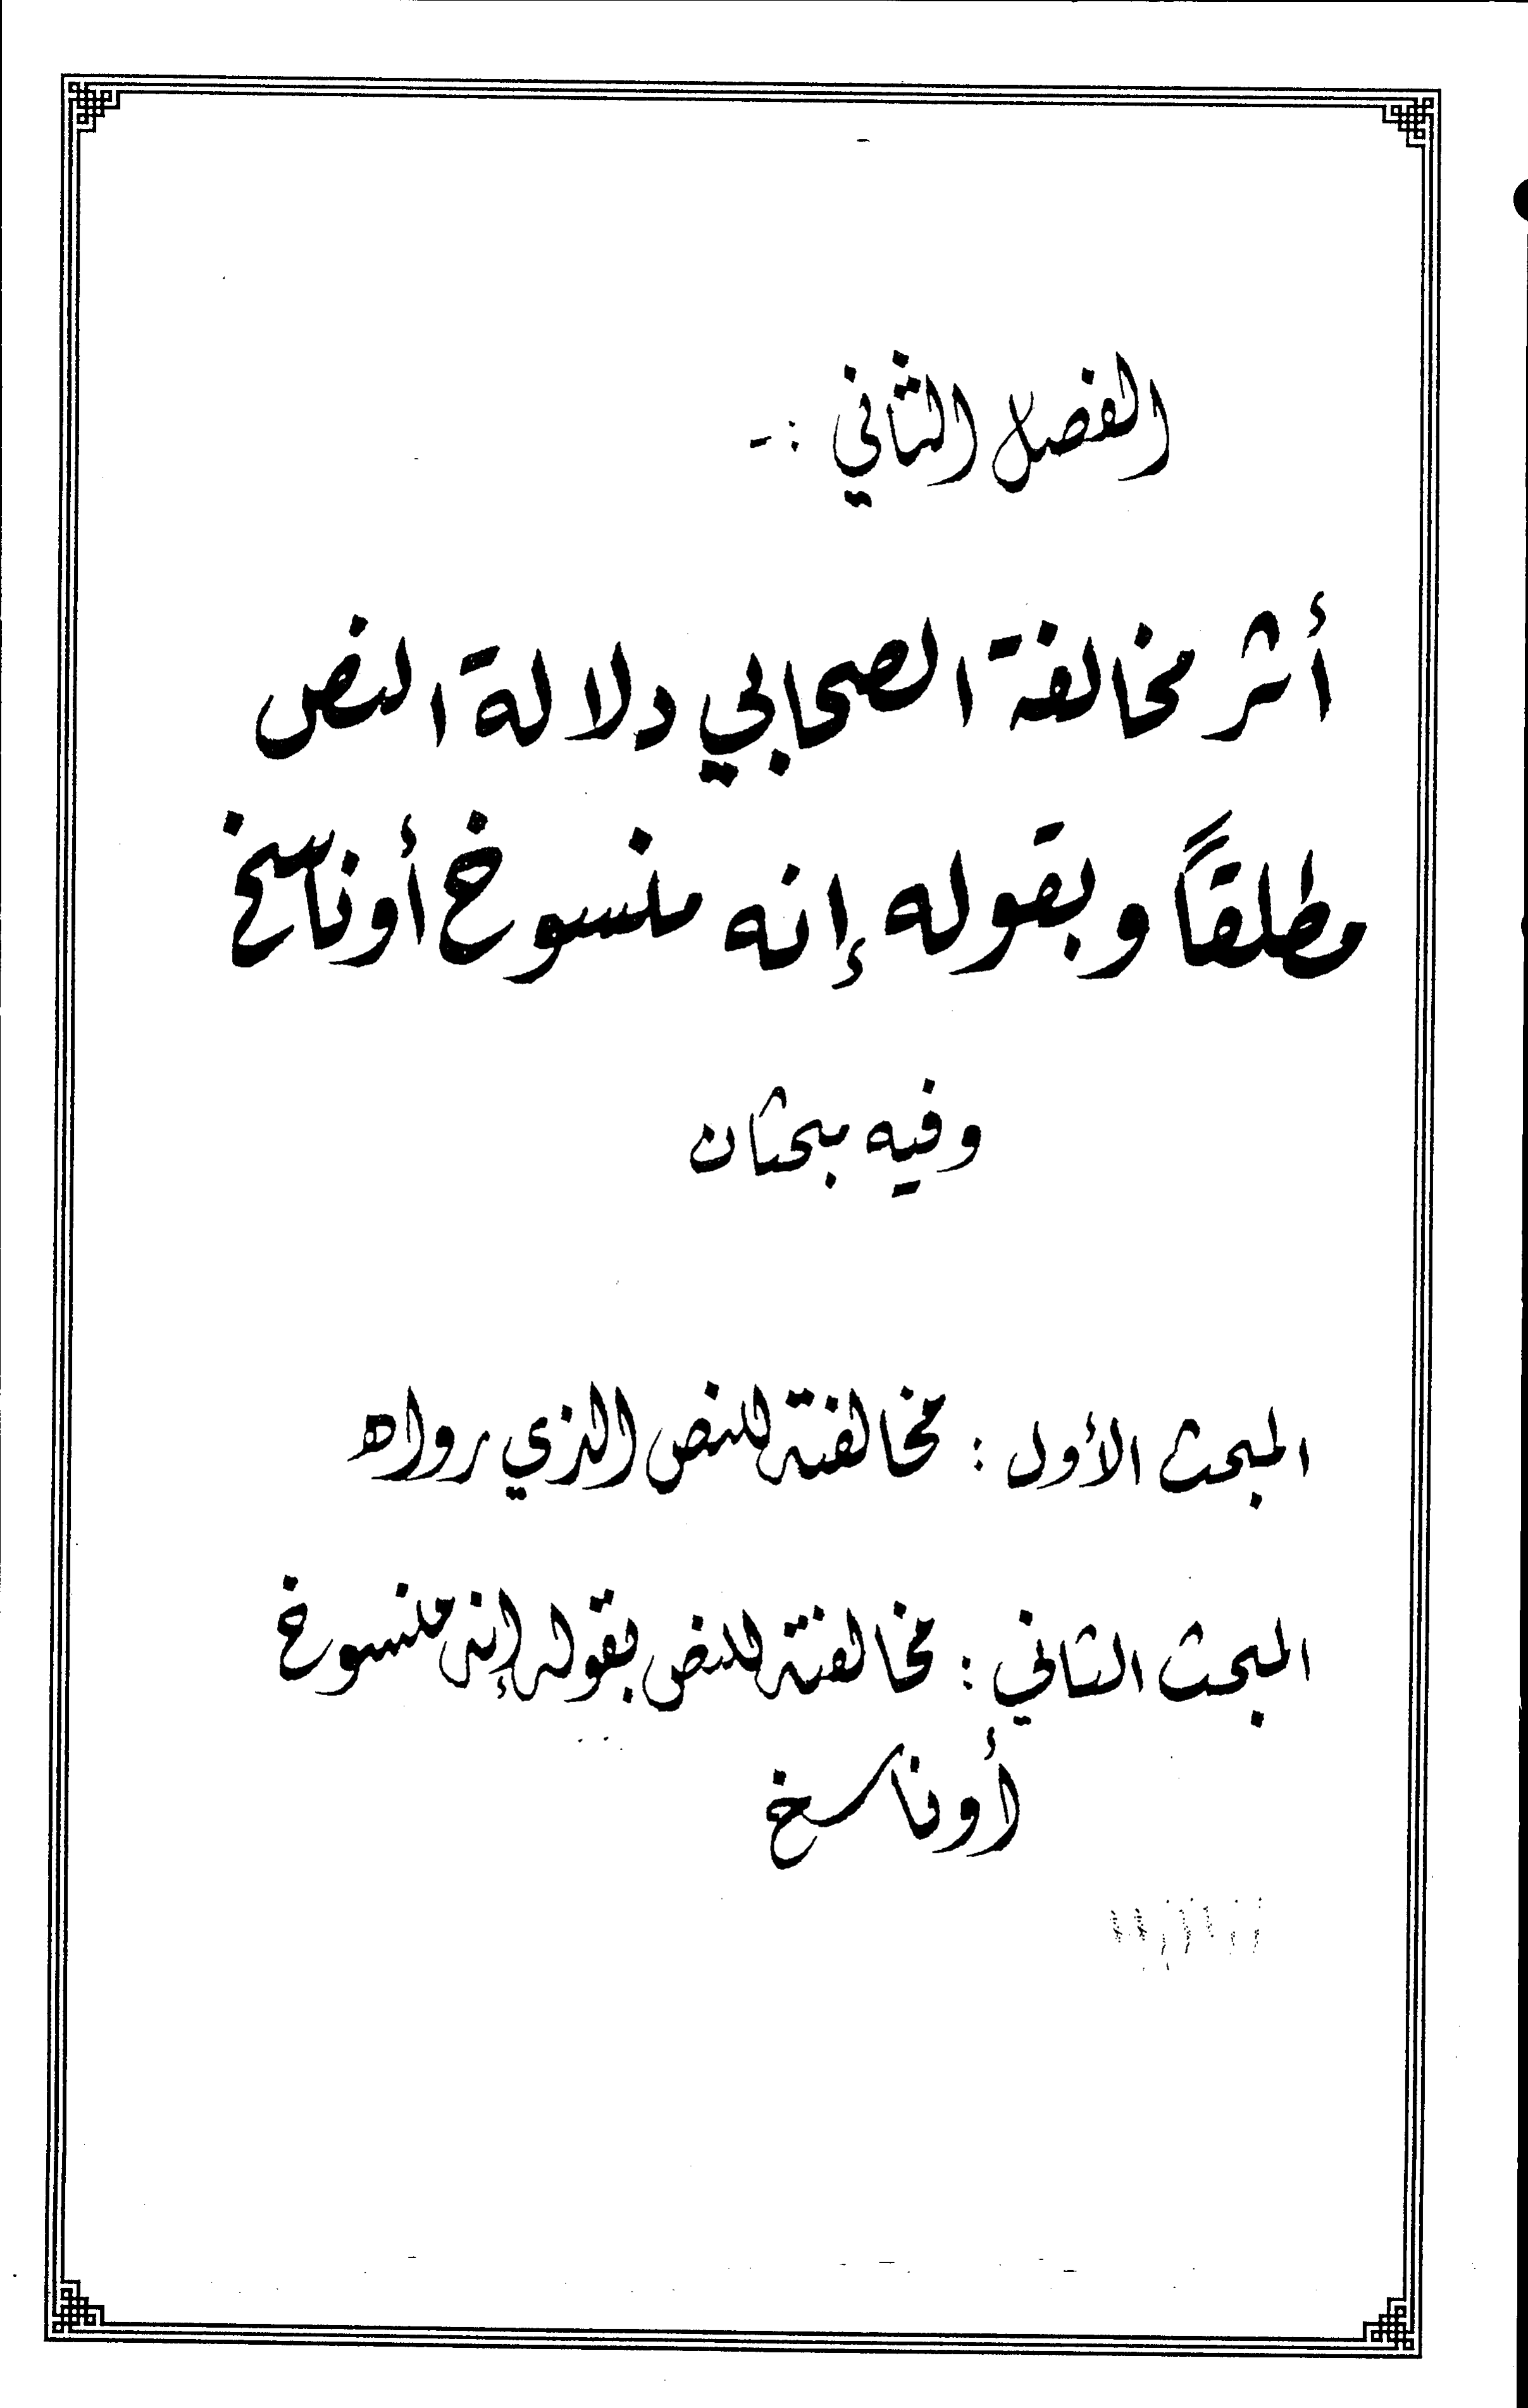 الفصل الثاني :-
أثر مخالفة الصحابي دلالة النص
مطلقاً وبقوله إنه منسوخ أو ناسخ
وفيه بحثان
المبحث الأول : مخالفته للنص الذي رواه
المبحث الثاني : مخالفته للنص بقوله إنه منسوخ
أو ناسخ